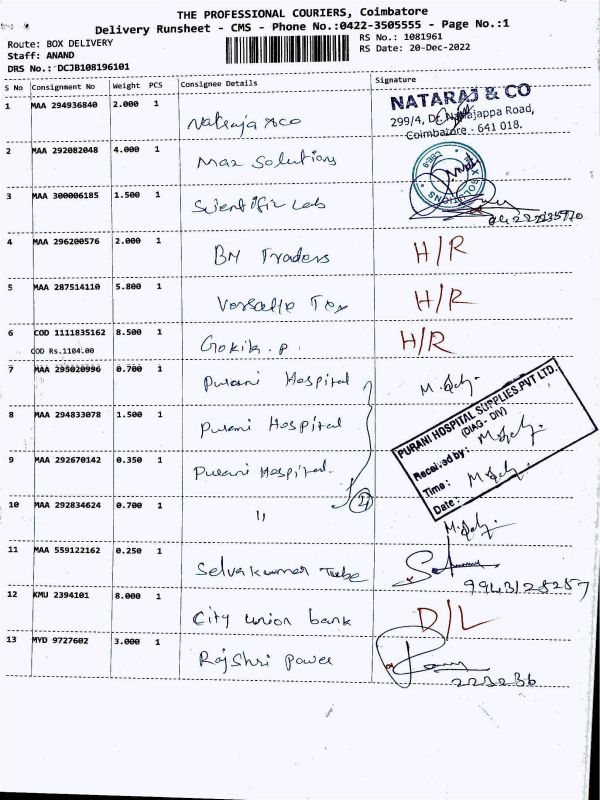 THE PROFESSIONAL COURIERS, Coimbatore
Delivery Runsheet - CMS - Phone No.:0422-3505555 - Page No.:1
Route: BOX DELIVERY
Staff: ANAND
DRS No.: DCJB108196101
RS No.: 1081961
RS Date: 20-Dec-2022
S No Consignment No Weight PCS Consignee Details Signature
1 MAA 294936840 2.000 1 Nataraja &co
NATARAJ & CO
299/4, Dr. Nanjappa Road,
Coimbatore - 641 018.
2 MAA 292082048 4.000 1 Max Solutions
3 MAA 300006185 1.500 1 Scientific Lab
4 MAA 296200576 2.000 1 BN Traders H/R
5 MAA 287514110 5.800 1 H/R
6 COD 1111835162 8.500 1 Gokik.p. H/R
COD Rs.1104.00
7 MAA 295020996 0.700 1 Purani Hospital
8 MAA 294833078 1.500 1 Purani Hospital
9 MAA 292670142 0.350 1 Purani Hospital.
PURANI HOSPITAL SUPPLIES PVT LTD.
(DIAG - DIV)
Received by:
Time:
Date:
10 MAA 292834624 0.700 1 "
4
11 MAA 559122162 0.250 1 Selvakumar Tube
9943128257
12 KMU 2394101 8.000 1 City union bank D/L
13 MYD 9727602 3.000 1 Rajshri Power
223236